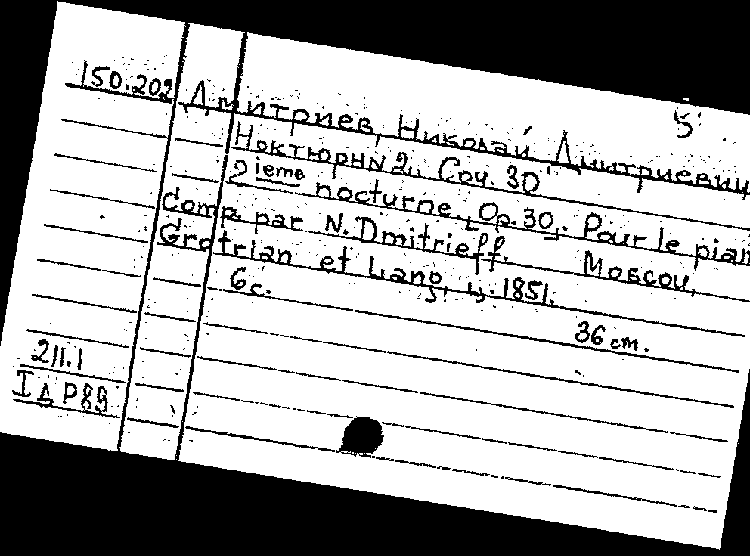 5
150.202 Дмитриев, Николай Дмитриевич
Ноктюрн N 2. Соч. 30
2ieme nocturne. [Op. 30]. Pour le pian
Comp. par N. Dmitrieff. Moscou,
Grotrian et Lang, ц. 1851.
6 с. 36 см.
211.1
I Д Р89